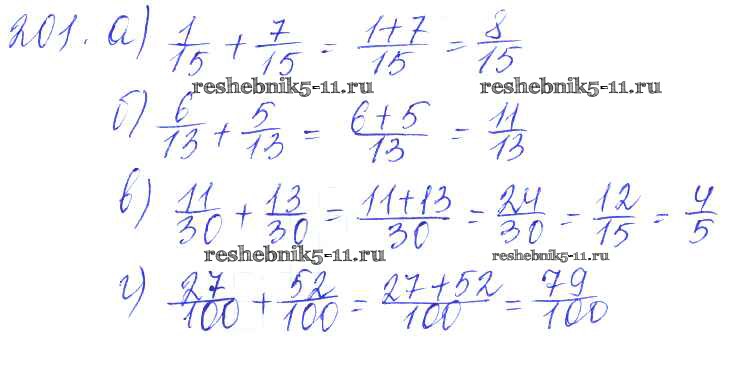 201. а) 1/15 + 7/15 = 1+7/15 = 8/15
reshebnik5-11.ru reshebnik5-11.ru
б) 6/13 + 5/13 = 6+5/13 = 11/13
в) 11/30 + 13/30 = 11+13/30 = 24/30 = 12/15 = 4/5
reshebnik5-11.ru reshebnik5-11.ru
г) 27/100 + 52/100 = 27+52/100 = 79/100